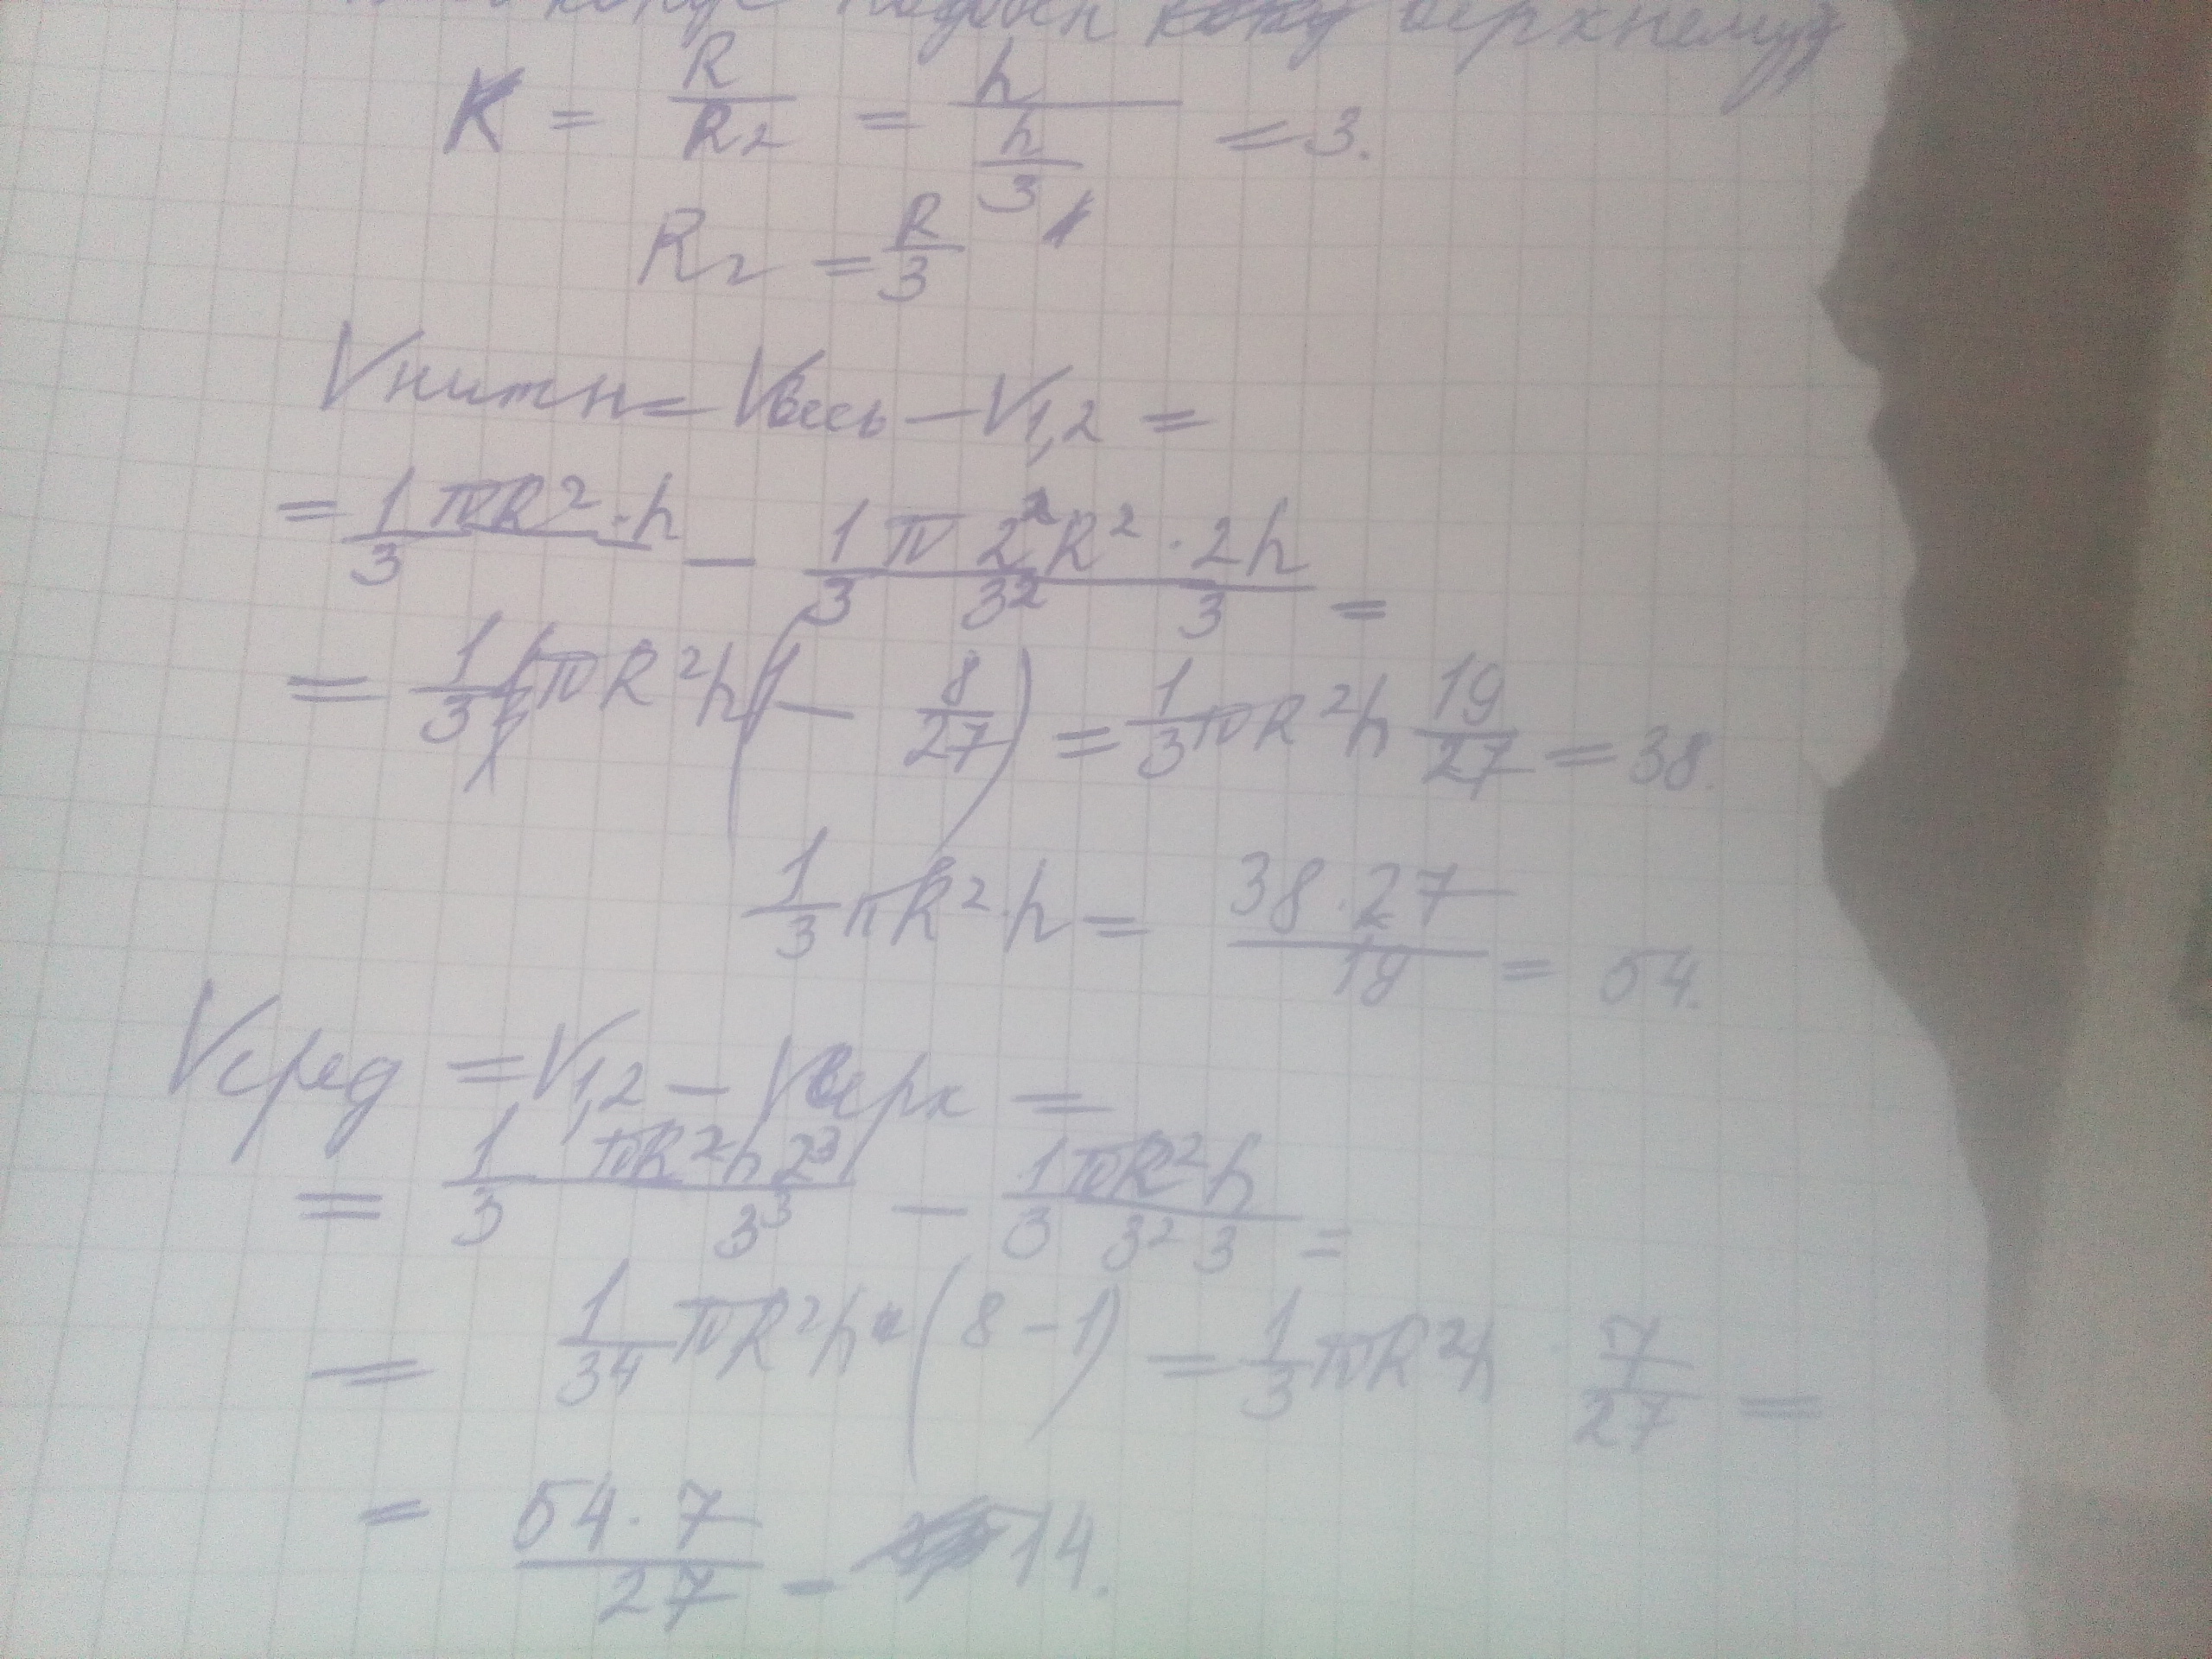 конус подобен верхнему
K = R/R₂ = h/(h/3) = 3.
R₂ = R/3
Vнижн = Vвесь – V1,2 =
= 1/3 πR² · h – 1/3 π 2²R²/3² · 2h/3 =
= 1/3 πR²h (1 – 8/27) = 1/3 πR²h 19/27 = 38.
1/3 πR² · h = 38 · 27/19 = 54.
Vсред = V1,2 – Vверх =
= 1/3 πR²h 2³/3³ – 1/3 πR²h/3² 3 =
= 1/3⁴ πR²h · (8 – 1) = 1/3 πR²h · 7/27 =
= 54 · 7/27 – 14.